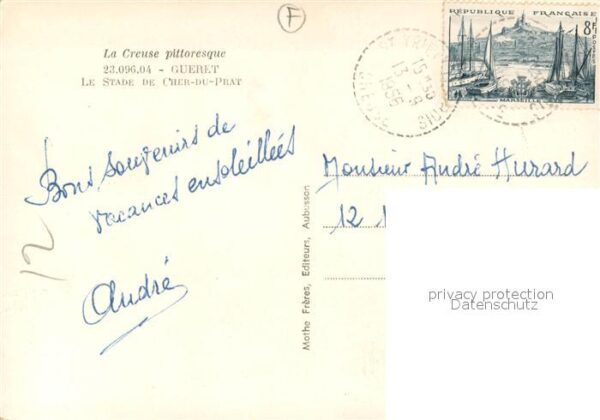 F
La Creuse pittoresque
23.096.04 - GUERET
LE STADE DE CHER-DU-PRAT
RÉPUBLIQUE FRANÇAISE
8F
POSTES
MARSEILLE
15 H 30
13 - 8
1956
Bons souvenirs de
vacances ensoleillées
André
12
Monsieur André Hurard
12
Mothe Frères, Editeurs, Aubusson
privacy protection
Datenschutz